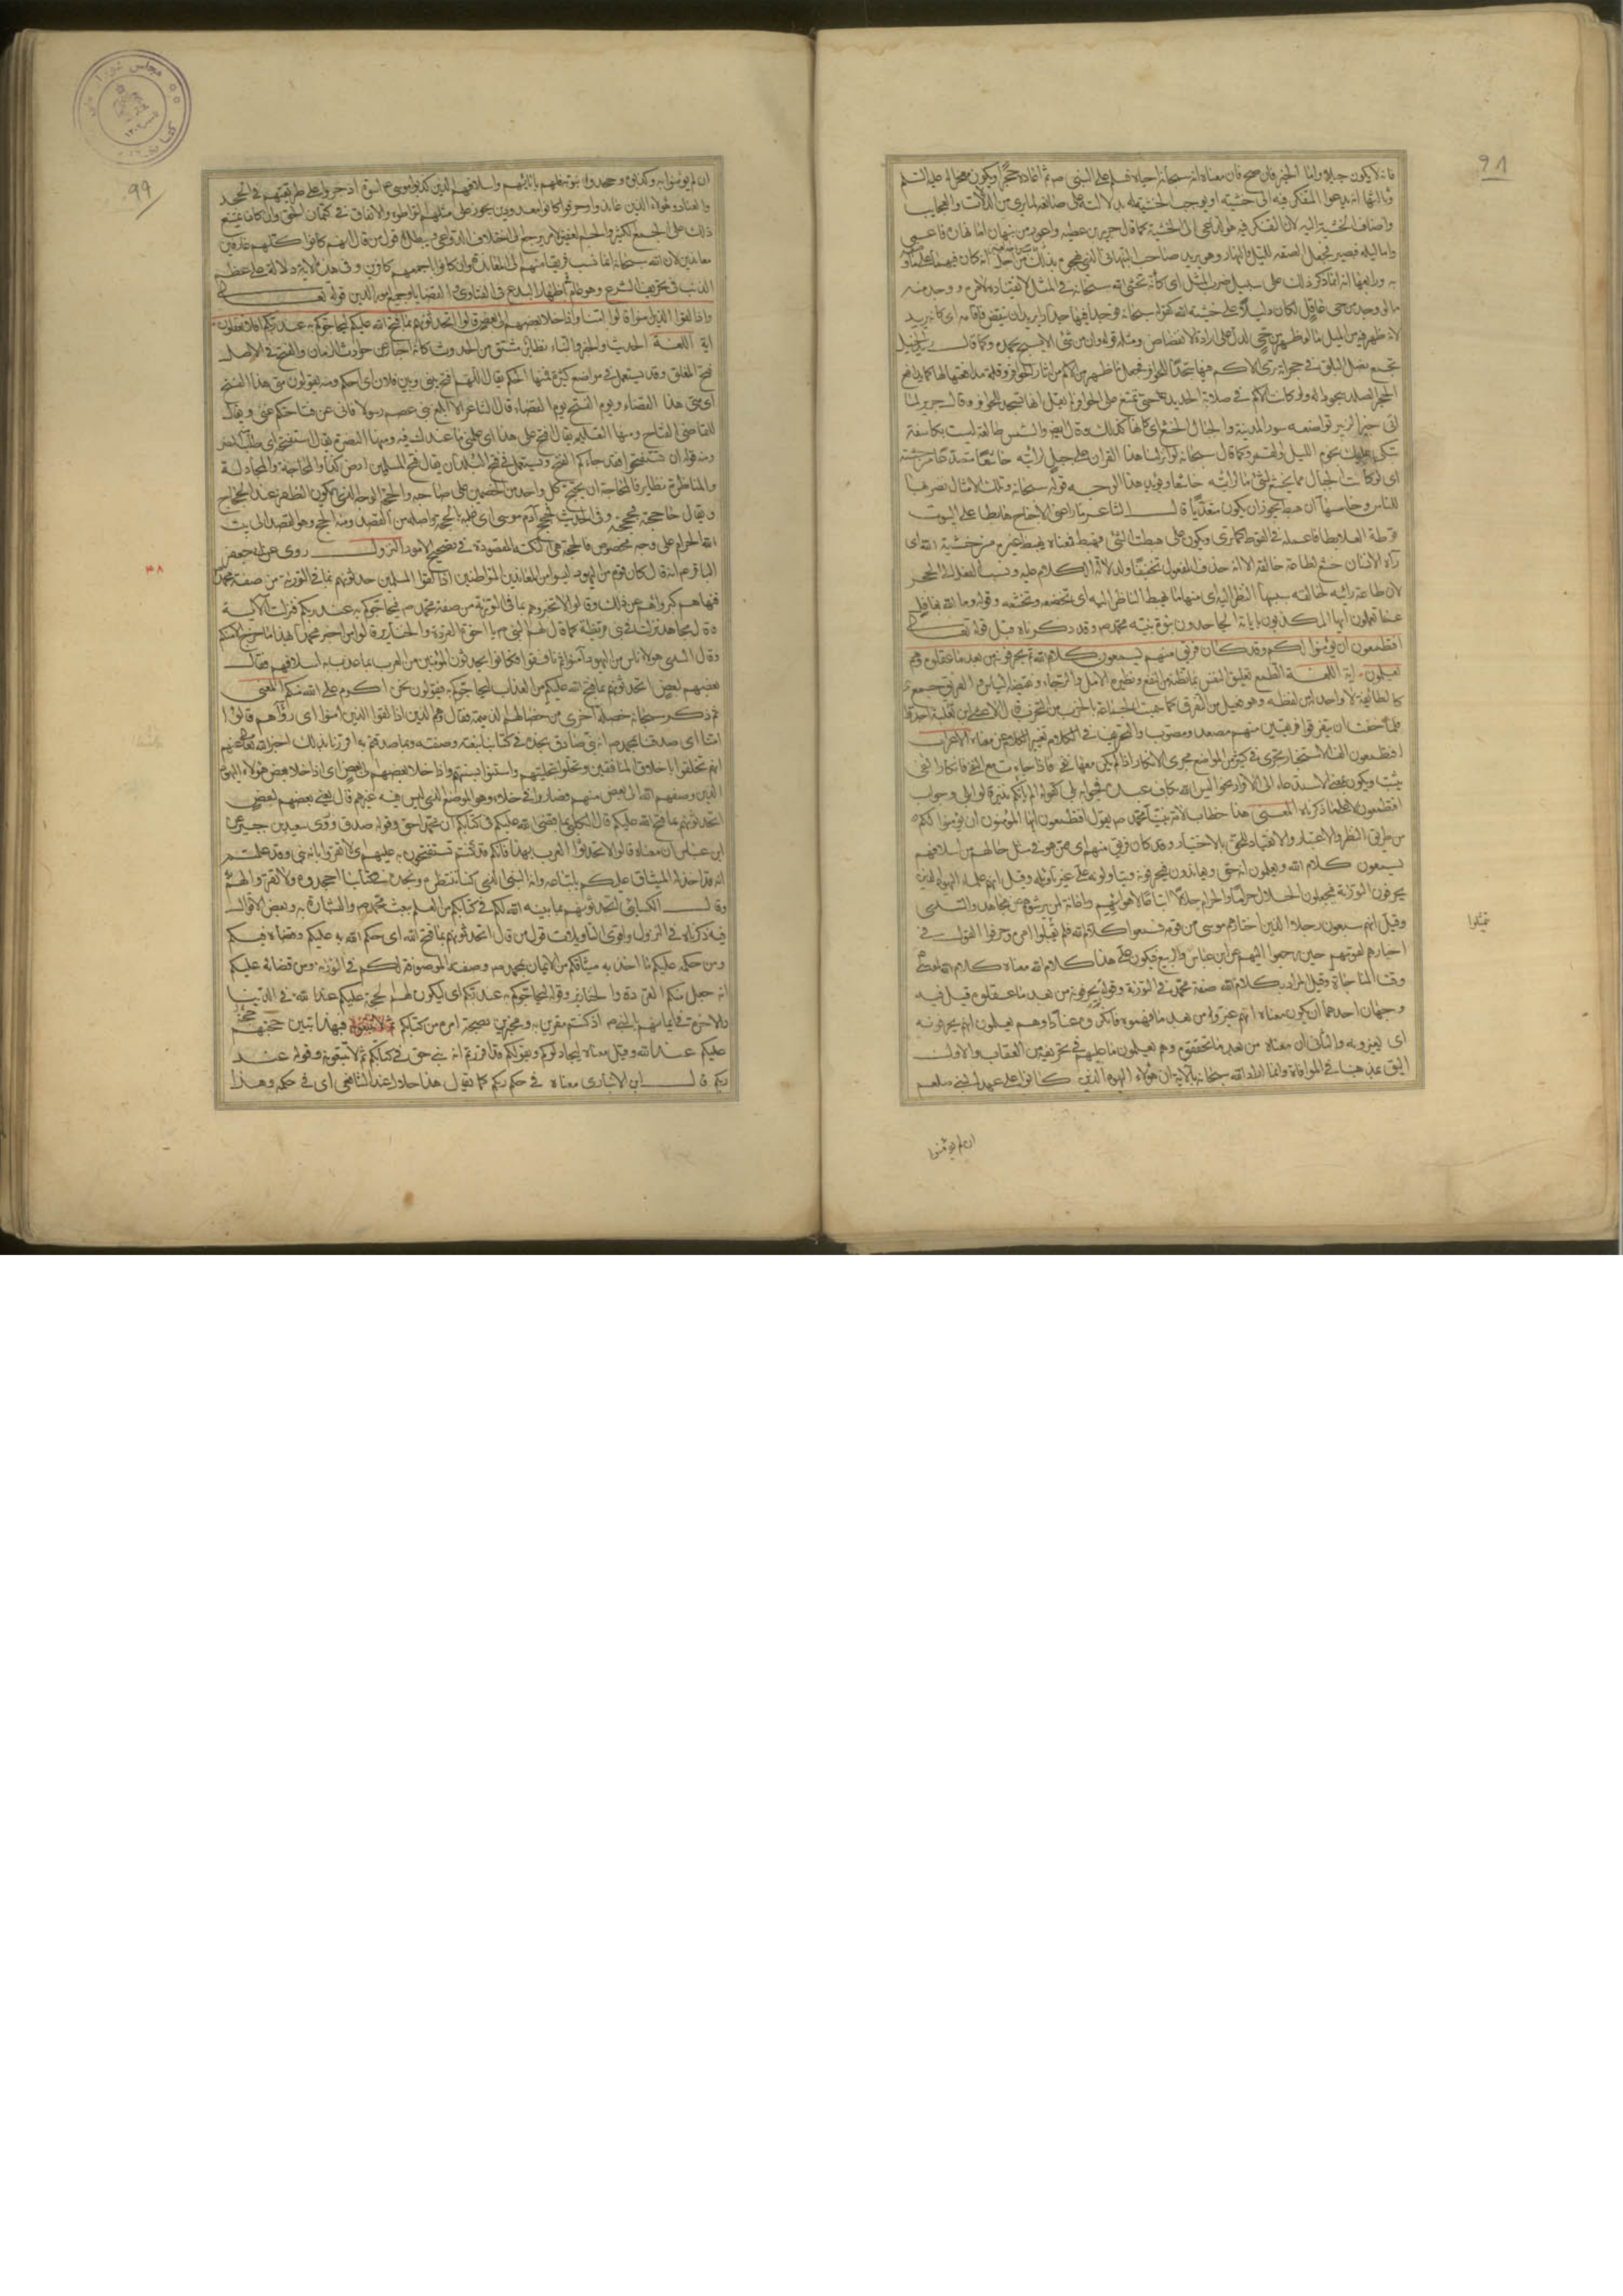 فانه لا يكون جبلا واما الخبر فان صح فان معناه انه سبحانه احياه فسلم على النبي ص ثم اعاده حجرا ويكون معجزا له عليه السلم
وثالثها انه يدعوا المتفكر فيه الى خشية الله او يوجب الخشية له بدلالته على صانعه لما يرى من الدلالات والعجايب
واضاف الخشية اليه لان التفكر فيه هو الداعي الى الخشية كما قال جرير بن عطية واعور من نبهان اما نهاره فاعمى
واما ليله فبصير فجعل الصفة لليل والنهار وهو يريد صاحبه النبهاني الذي يهجوه بذلك من اجل انه كان فيهما على ما وصفه
به ورابعها انه انما ذكر ذلك على سبيل ضرب المثل اي كانه يخشى الله سبحانه في المثل لانقياده لامره ووجد منه
ما لو وجد من حي عاقل لكان دليلا على خشية الله كقوله سبحانه فوجدا فيها جدارا يريد ان ينقض فاقامه اي كانه يريد
لانه ظهر فيه من الميل ما لو ظهر من حي لدل على ارادة الانقضاض ومثله قوله وان من شئ الا يسبح بحمده وكما قال زيد الخيل
بجمع تضل البلق في حجراته ترى الاكم فيها سجدا للحوافر فجعل ما ظهر من الاكم من اثار الحوافر وقلة مدافعتها لها كما يدافع
الحجر الصلد سجودا لها ولو كانت الاكم في صلابة الحديد حتى تمتنع على الحوافر لم يقل انها تسجد للحوافر وقال جرير لما
اتى خبر الزبير تواضعت سور المدينة والجبال الخشع اي كانها كذلك وقال ايضا والشمس طالعة ليست بكاسفة
تبكي عليك نجوم الليل والقمر وكما قال سبحانه لو انزلنا هذا القران على جبل لرايته خاشعا متصدعا من خشية
اي لو كانت الجبال مما يخشع لشئ ما لرايته خاشعا ويؤيد هذا الوجه قوله سبحانه وتلك الامثال نضربها
للناس وخامسها ان هبط يجوز ان يكون متعديا قال الشاعر ما راعني الا جناح هابطا على البيوت
قوطه العلابطا فاعمله في القوط كما ترى ويكون على هبطت الشئ فهبط فمعناه يهبط غيره من خشية الله اي
رآه الانسان خشع لطاعة خالقه الا انه حذف المفعول تخفيفا ولدلالة الكلام عليه ونسب الفعل الى الحجر
لان طاعة رائيه لخالقه سببها النظر اليه اي منها ما يهبط الناظر اليه اي تخضعه وتخشعه وقوله وما الله بغافل
عما تعملون ايها المكذبون باياته الجاحدون نبوة نبيه محمد ص وقد ذكرناه قبل قوله تعالى
افتطمعون ان يؤمنوا لكم وقد كان فريق منهم يسمعون كلام الله ثم يحرفونه من بعد ما عقلوه وهم
يعلمون اية اللغة الطمع تعليق النفس بما تظنه من النفع ونظيره الامل والرجاء ونقيضه الياس والفريق جمع
كالطائفة لا واحد له من لفظه وهو فعيل من التفرق كما سميت الجماعة بالحزب من التحزب قال الاعشى بن ثعلبة اجدوا
فلما خفت ان يتفرقوا فريقين منهم مصعد ومصوب والتحريف في الكلام تغيير الكلمة عن معناه الاعراب
افتطمعون الف الاستخبار تجري في كثير من المواضع مجرى الانكار اذا لم يكن معها نفي فاذا جاءت مع النفي فانكار النفي
تثبيت ويكون بمعنى الاستدعاء الى الاقرار نحو اليس الله بكاف عبده فجوابه بلى كقوله الم ياتكم نذير قالوا بلى وجواب
افتطمعون لا على ما ذكرناه المعنى هذا خطاب لامة نبينا محمد ص يقول افتطمعون ايها المؤمنون ان يؤمنوا لكم
من طريق النظر والاعتبار والانقياد للحق بالاختيار وقد كان فريق منهم اي ممن هو في مثل حالهم من اسلافهم
يسمعون كلام الله ويعلمون انه حق ويعاندون فيحرفونه ويتاولونه على غير تاويله وقيل انهم علماء اليهود الذين
يحرفون التورية فيجعلون الحلال حراما والحرام حلالا اتباعا لاهوائهم واعانة لمن يرشوهم عن مجاهد والسدي
وقيل انهم سبعون رجلا الذين اختارهم موسى من قومه فسمعوا كلام الله فلم يمتثلوا امره وحرفوا القول في
اخبارهم لقومهم حين رجعوا اليهم عن ابن عباس والربيع فيكون على هذا كلام الله معناه كلام الله لموسى
وقت المناجاة وقيل المراد بكلام الله صفة محمد في التورية وقوله يحرفونه من بعد ما عقلوه قيل فيه
وجهان احدهما ان يكون معناه انهم غيروه من بعد ما فهموه فانكروه عنادا وهم يعلمون انهم يحرفونه
اي يغيرونه والثاني ان معناه من بعد ما تحققوه وهم يعلمون ما عليهم في تحريفه من العقاب والاول
اليق بمذهبنا في الموافاة وانما اراد الله سبحانه بالاية ان هؤلاء اليهود الذين كانوا على عهد النبي صلعم
ان لم يؤمنوا
ان لم يؤمنوا به وكذبوه وجحدوا نبوته فلهم بابائهم واسلافهم الذين كذبوا موسى ع اسوة اذ جروا على طريقتهم في الجحد
والعناد وهؤلاء الذين عاندوا وحرفوا كانوا معدودين يجوز على مثلهم التواطؤ والاتفاق في كتمان الحق وان كان يمتنع
ذلك على الجمع الكثير والجم الغفير لامر يرجع الى اختلاف الدواعي ويبطل قول من قال انهم كانوا كلهم عارفين
معاندين لان الله سبحانه انما نسب فريقا منهم الى المعاندة وان كانوا باجمعهم كافرين وفي هذه الاية دلالة على عظم
الذنب في تحريف الشرع وهو عام في اظهار البدع في الفتاوى والقضايا وجميع امور الدين قوله تعالى
واذا لقوا الذين آمنوا قالوا امنا واذا خلا بعضهم الى بعض قالوا اتحدثونهم بما فتح الله عليكم ليحاجوكم به عند ربكم افلا تعقلون
اية اللغة الحديث والخبر والنباء نظائر مشتق من الحدوث كانه اخبار عن حوادث الزمان والفتح في الاصل
فتح المغلق وقد يستعمل في مواضع كثيرة فمنها الحكم يقال اللهم افتح بيني وبين فلان اي احكم ومنه يقولون متى هذا الفتح
اي متى هذا القضاء ويوم الفتح يوم القضاء قال الشاعر الا ابلغ بني عصم رسولا فاني عن فتاحتكم غني ويقال
للقاضي الفتاح ومنها التعليم يقال افتح على هذا اي علمني ما عندك فيه ومنها النصرة يقال استفتحه اي طلب منه النصر
ومنه قوله ان تستفتحوا فقد جاءكم الفتح ويستعمل في فتح البلدان يقال فتح المسلمون ارض كذا والمحاجة والمجادلة
والمناظرة نظاير فالمحاجة ان يحتج كل واحد من الخصمين على صاحبه والحجة الوجه الذي به يكون الظفر عند الحجاج
ويقال حاججته فحججته وفي الحديث فحج آدم موسى اي غلبه بالحجة واصله من القصد ومنه الحج وهو القصد الى بيت
الله الحرام على وجه مخصوص فالحجة هي النكتة المقصودة في تصحيح الامور النزول روي عن ابي جعفر
الباقر ع انه قال كان قوم من اليهود ليسوا من المعاندين المتواطئين اذا لقوا المسلمين حدثوهم بما في التورية من صفة محمد
فنهاهم كبراؤهم عن ذلك وقالوا لا تخبروهم بما في التورية من صفة محمد ص فيحاجوكم به عند ربكم فنزلت الاية
وقال مجاهد نزلت في بني قريظة كما قال لهم النبي ص يا اخوة القردة والخنازير قالوا من اخبر محمدا بهذا ما خرج الا منكم
وقال السدي هؤلاء ناس من اليهود آمنوا ثم نافقوا فكانوا يحدثون المؤمنين من العرب بما عذب به اسلافهم فقال
بعضهم لبعض اتحدثونهم بما فتح الله عليكم من العذاب ليحاجوكم به فيقولون نحن اكرم على الله منكم المعنى
ثم ذكر سبحانه خصلة اخرى من خصالهم الذميمة فقال وهم الذين اذا لقوا الذين امنوا اي رؤاهم قالوا
امنا اي صدقنا بمحمد ص انه نبي صادق نجده في كتابنا بنعته وصفته وبما صدقتم به اقررنا بذلك اخبر الله تعالى عنهم
انهم تخلقوا باخلاق المنافقين وتحلوا بحليتهم واستنوا بسنتهم واذا خلا بعضهم الى بعض اي اذا خلا بعض هؤلاء اليهود
الذين وصفهم الله الى بعض منهم وصاروا في خلاء وهو الموضع الذي ليس فيه غيرهم قال يعني بعضهم لبعض
اتحدثونهم بما فتح الله عليكم قال الكلبي بما قضى الله عليكم في كتابكم ان محمدا حق وقوله صدق وروى سعيد بن جبير عن
ابن عباس ان معناه قالوا لا تحدثوا العرب بهذا فانكم قد كنتم تستفتحون به عليهم اي لا تقروا بانه نبي وقد علمتم
انه قد اخذ له الميثاق عليكم باتباعه وانه النبي الذي كنا ننتظره ونجده في كتابنا اجحدوه ولا تقروا لهم به
وقال الكسائي اتحدثونهم بما بينه الله لكم في كتابكم من العلم ببعث محمد ص والبشارة به وبعض الاقوال
فيه ذكرناه في النزول واقوى التاويلات قول من قال اتحدثونهم بما فتح الله اي حكم الله به عليكم وقضاه فيكم
ومن حكمه عليكم ما اخذ به ميثاقكم من الايمان بمحمد ص وصفته الموصوفة لكم في التورية ومن قضائه عليكم
انه جعل منكم القردة والخنازير وقوله ليحاجوكم به عند ربكم اي ليكون لهم الحجة عليكم عند الله في الدنيا
والاخرة في ايمانهم بالنبي ص اذ كنتم مقرين به ومخبرين بصحة امره من كتابكم ثم لا تتبعونه فبهذا تبين حجتهم
عليكم عند الله وقيل معناه ليجادلوكم ويقولوا لكم قد اقررتم انه نبي حق في كتابكم ثم لا تتبعونه وقوله عند
ربكم قال ابن الانباري معناه في حكم ربكم كما يقول هذا حلال عند الشافعي اي في حكمه وهذا
٩٩